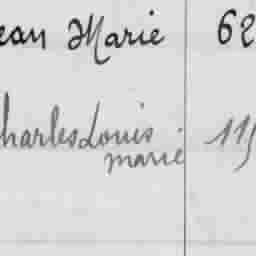 ean Marie 62
harles Louis 115
marie